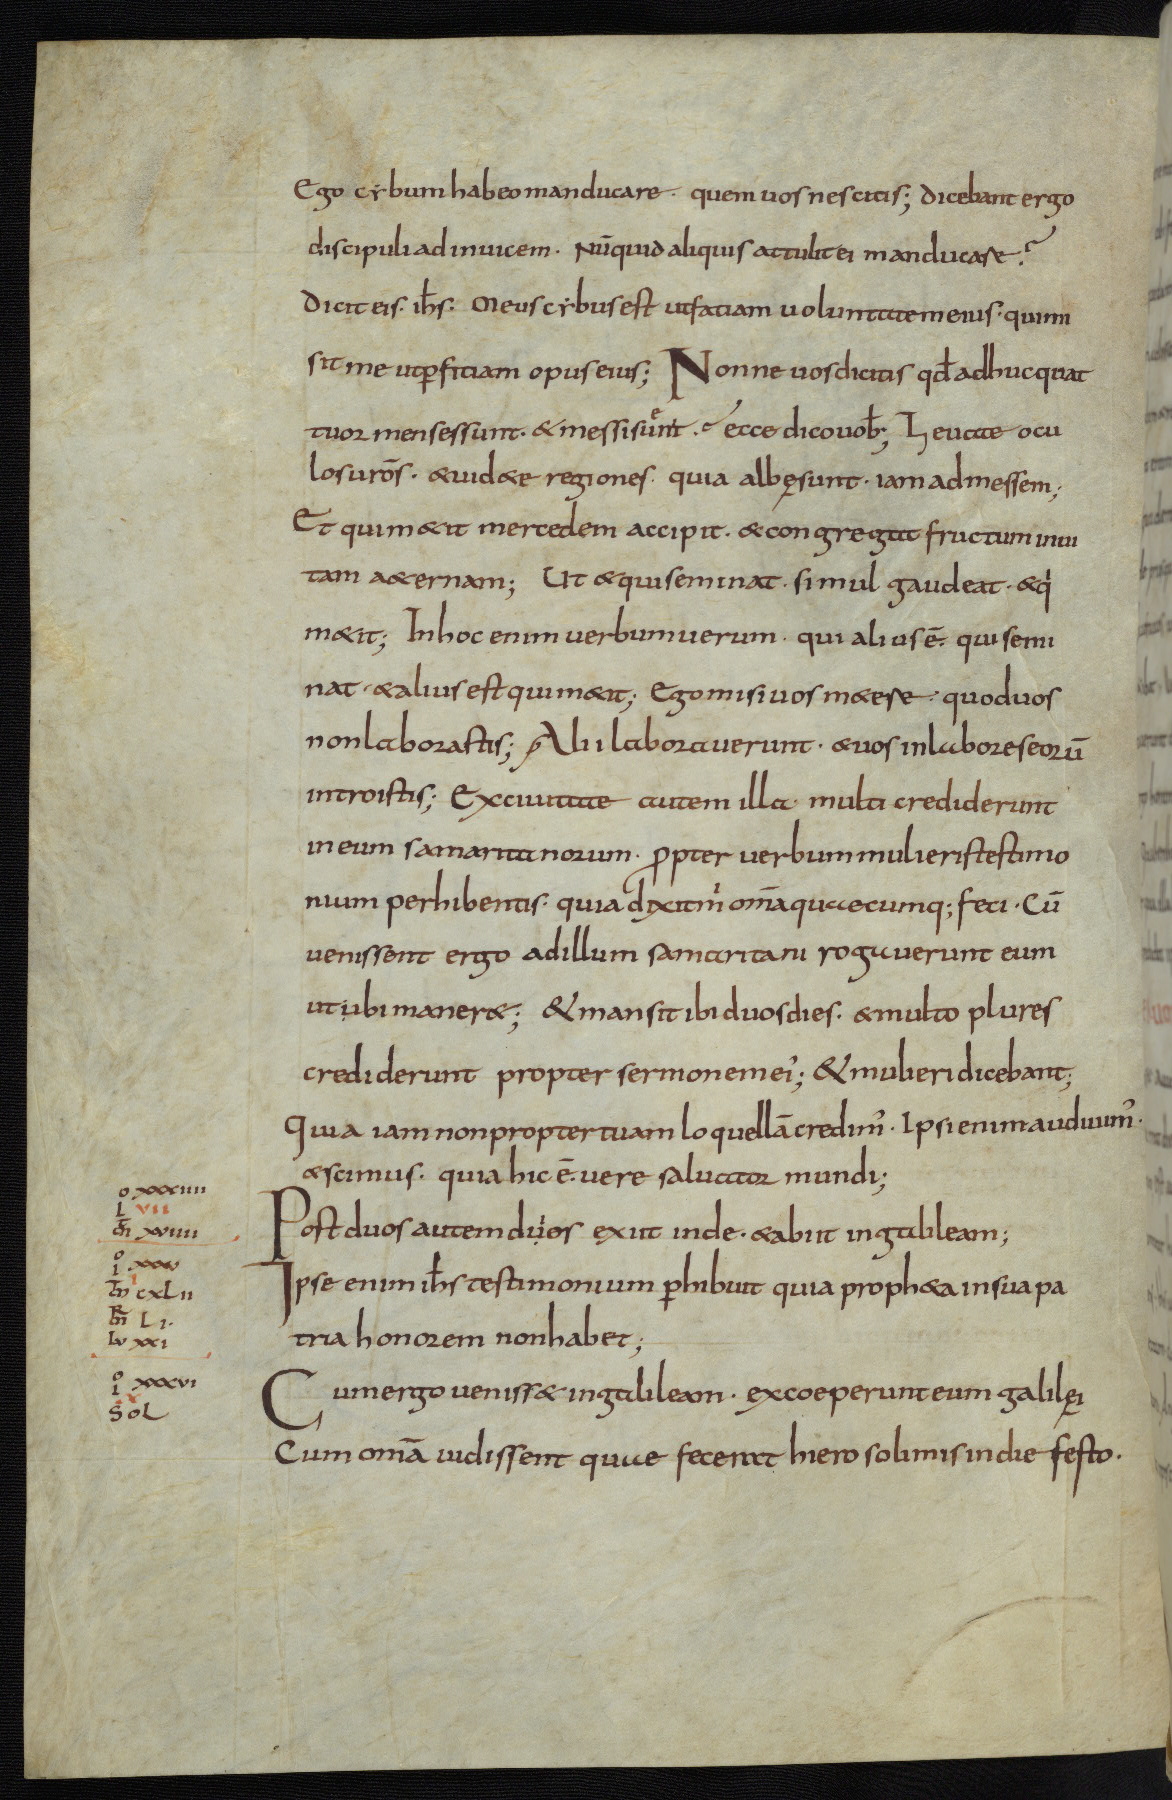 Ego cẏbum habeo manducare· quem uos nescitis; dicebant ergo
discipuli ad inuicem· Nūquid aliquis attulit ei manducare?
Dicit eis· ih̄s· Meus cẏbus est ut fatiam uoluntatem eius· qui mi
sit me ut ꝑfitiam opus eius; Nonne uos dicitis qd̄ adhuc quat
tuor menses sunt· & messis uenit? ecce dico uob̄; Leuate ocu
los ur̄os· & uid&e regiones· quia albę sunt· iam ad messem;
Et qui m&it mercedem accipit· & congregat fructum in ui
tam a&ernam; Ut & qui seminat· simul gaudeat· & q
m&it; In hoc enim uerbum uerum· qui alius ē· qui semi
nat· & alius est qui m&it; Ego misi uos m&ere· quod uos
non laborastis; Alii laborauerunt· & uos in labores eorū
introistis; Ex ciuitate autem illa· multi crediderunt
in eum samaritanorum· ꝓpter uerbum mulieris testimo
nium perhibentis· quia dixit m omā quaecumq; feci· Cū
uenissent ergo ad illum samaritani rogauerunt eum
ut ubi maner&; & mansit ibi duos dies· & multo plures
crediderunt propter sermonem ei'; & mulieri dicebant;
Quia iam non propter tuam loquellā credim'· Ipsi enim audiuim'·
& scimus· quia hic ē· uere saluator mundi;
o xxxiiii
L vii
m̄ xviiii
Post duos autem dies exiit inde· & abiit in galileam;
o xxxv
i
m̄ cxlii
m̄ Li·
Lu xxi
Ipse enim ih̄s testimonium ꝑhibuit quia proph&a in sua pa
tria honorem non habet;
o xxxvi
i
SoL
Cum ergo uenisset in galileam· excoeperunt eum galilęi
Cum omā uidissent quae fecerat hierosolimis in die festo·